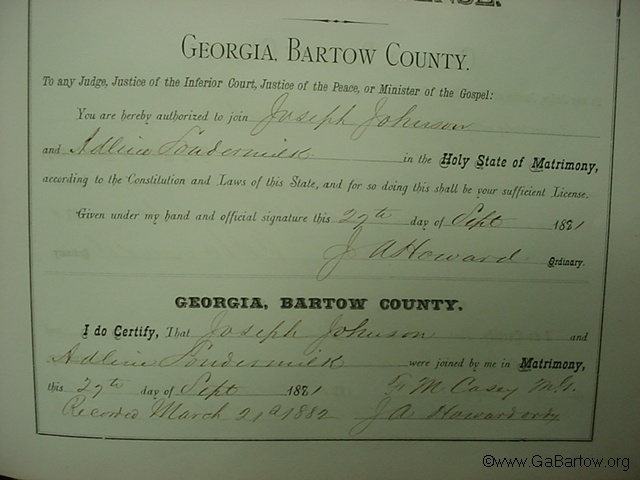 GEORGIA, BARTOW COUNTY.
To any Judge, Justice of the Inferior Court, Justice of the Peace, or Minister of the Gospel:
You are hereby authorized to join Joseph Johnson
and Adline Loudermilk in the Holy State of Matrimony,
according to the Constitution and Laws of this State, and for so doing this shall be your sufficient License.
Given under my hand and official signature this 27th day of Sept 1881
J A Howard Ordinary.
GEORGIA, BARTOW COUNTY.
I do Certify, That Joseph Johnson and
Adline Loudermilk were joined by me in Matrimony,
this 27th day of Sept 1881 M Casey M.G.
Recorded March 21st 1882 J A Howard ordy
©www.GaBartow.org